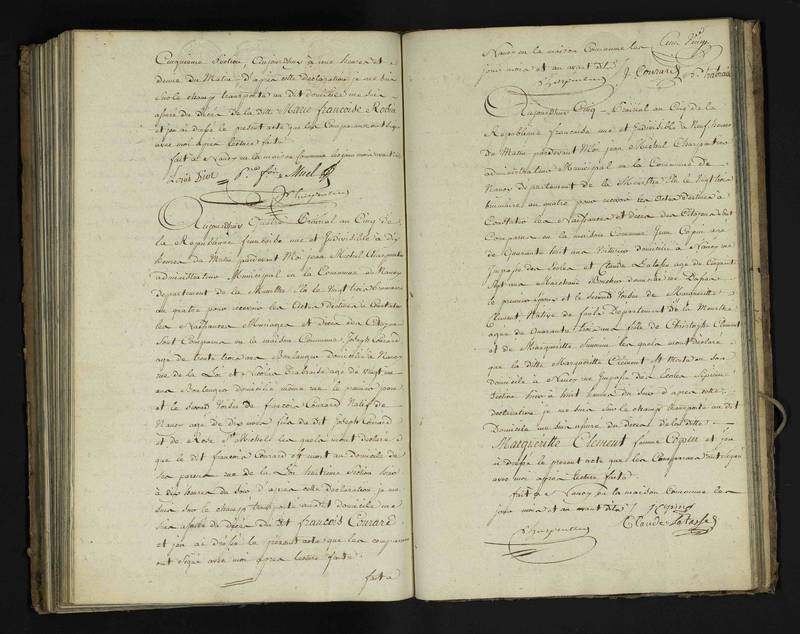 Cinquieme Section, Aujourdhuy à une heure et
demie du Matin d'après cette declaration je me suis
sur le champ transporté au dit domicile me suis
assuré du Décès de la ditte Marie francoise Robin
et jai dressé le present acte que les Comparans ont signé
avec moi après lecture faite
fait à Nancy en la maison Commune les jour mois et an
Charpentier
Aujourdhuy Quatre Prérial an Cinq de
la Republique francoise une et Indivisible à dix
heures du Matin pardevant Moi jean Michel Charpentier
administrateur Municipal en la Commune de Nancy
Departement de la Meurthe Elu le Vingt trois Brumaire
an quatre pour recevoir les Actes destinés à Constater
les Naissances Mariages et Décès des Citoyens
Sont Comparus en la maison Commune Joseph Courard
agé de trente trois ans Boulanger domicilié à Nancy
rue de la Loi et Nicolas agé de Vingt
ans Boulanger domicilié même rue le premier pere
et le second Voisin de francois Courard Natif de
Nancy agé de dix mois fils de dit Joseph Courard
et de Rose St Michel les quels mont déclaré
que le dit francois Courard est mort au domicile de
ses parens rue de la Loi huitieme Section hier
à dix heures du Soir d'après cette Declaration je me
suis sur le champ transporté au dit domicile me
suis assuré du Décès du dit francois Courard
et jai dressé le présent acte que les comparans
ont signé avec moi après lecture faite
fait à
Nancy en la maison Commune les
jour mois et an avant dits
Charpentier J. Courard
Aujourdhuy Cinq Prérial an Cinq de la
Republique francoise une et Indivisible à Neuf heures
du Matin pardevant Moi jean Michel Charpentier
administrateur Municipal en la Commune de
Nancy Departement de la Meurthe Elu le Vingt trois
brumaire an quatre pour recevoir les Actes destinés à
Constater les Naissances et décès des Citoyens Sont
Comparus en la maison Commune Jean Copin agé
de Quarante huit ans domicilié à Nancy rue
Impasse des Ecoles et Claude Lalasse agé de
Sept ans Marchand domicilié rue
le premier époux et le Second Voisin de Marguerite
Clement Native de Département de la Meurthe
agée de Quarante trois ans fille de Christophe Clement
et de Margueritte les quels mont declaré
que la ditte Margueritte Clément est Morte en son
domicile à Nancy rue Impasse des Ecoles Septieme
Section hier à huit heures du Soir d'après cette
declaration je me suis sur le champ transporté au dit
Domicile me suis assuré du Décès de la ditte
Margueritte Clement femme Copin et jai
dressé le present acte que les Comparans ont signé
avec moi après lecture faite
fait à Nancy en la maison Commune les
jour mois et an avant dits J Copin
Charpentier Claude Lalasse